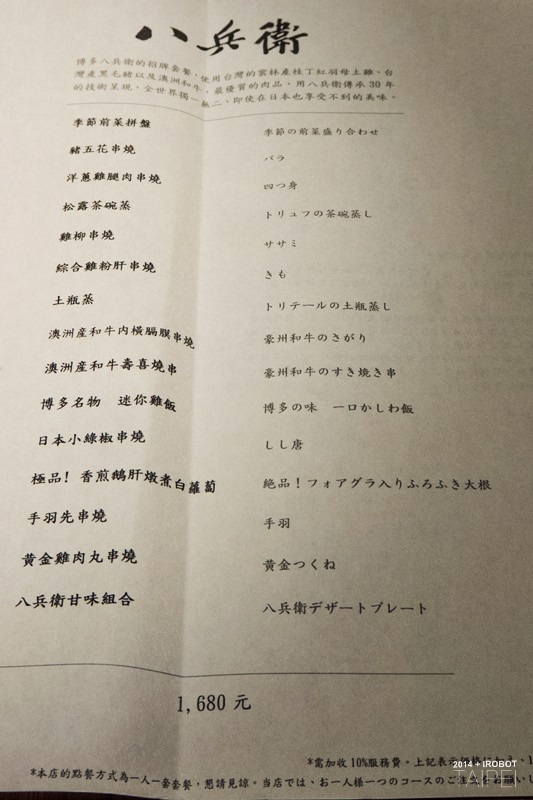 八兵衛
博多八兵衛的招牌套餐，使用台灣的雲林產桂丁紅羽母土雞、台
灣產黑毛豬以及澳洲和牛，最優質的肉品，用八兵衛傳承 30 年
的技術呈現，全世界獨一無二，即使在日本也享受不到的美味。
季節前菜拼盤 季節の前菜盛り合わせ
豬五花串燒 バラ
洋蔥雞腿肉串燒 四つ身
松露茶碗蒸 トリュフの茶碗蒸し
雞柳串燒 ササミ
綜合雞粉肝串燒 きも
土瓶蒸 トリテールの土瓶蒸し
澳洲産和牛內橫膈膜串燒 豪州和牛のさがり
澳洲産和牛壽喜燒串 豪州和牛のすき焼き串
博多名物 迷你雞飯 博多の味 一口かしわ飯
日本小綠椒串燒 しし唐
極品！香煎鵝肝燉煮白蘿蔔 絶品！フォアグラ入りふろふき大根
手羽先串燒 手羽
黃金雞肉丸串燒 黄金つくね
八兵衛甘味組合 八兵衛デザートプレート
1,680 元
*需加收 10%服務費。上記表示価格
*本店的點餐方式為一人一套套餐，懇請見諒。当店では、お一人様一つのコースのご注文をお願い
2014 + IROBOT
TAIPEI